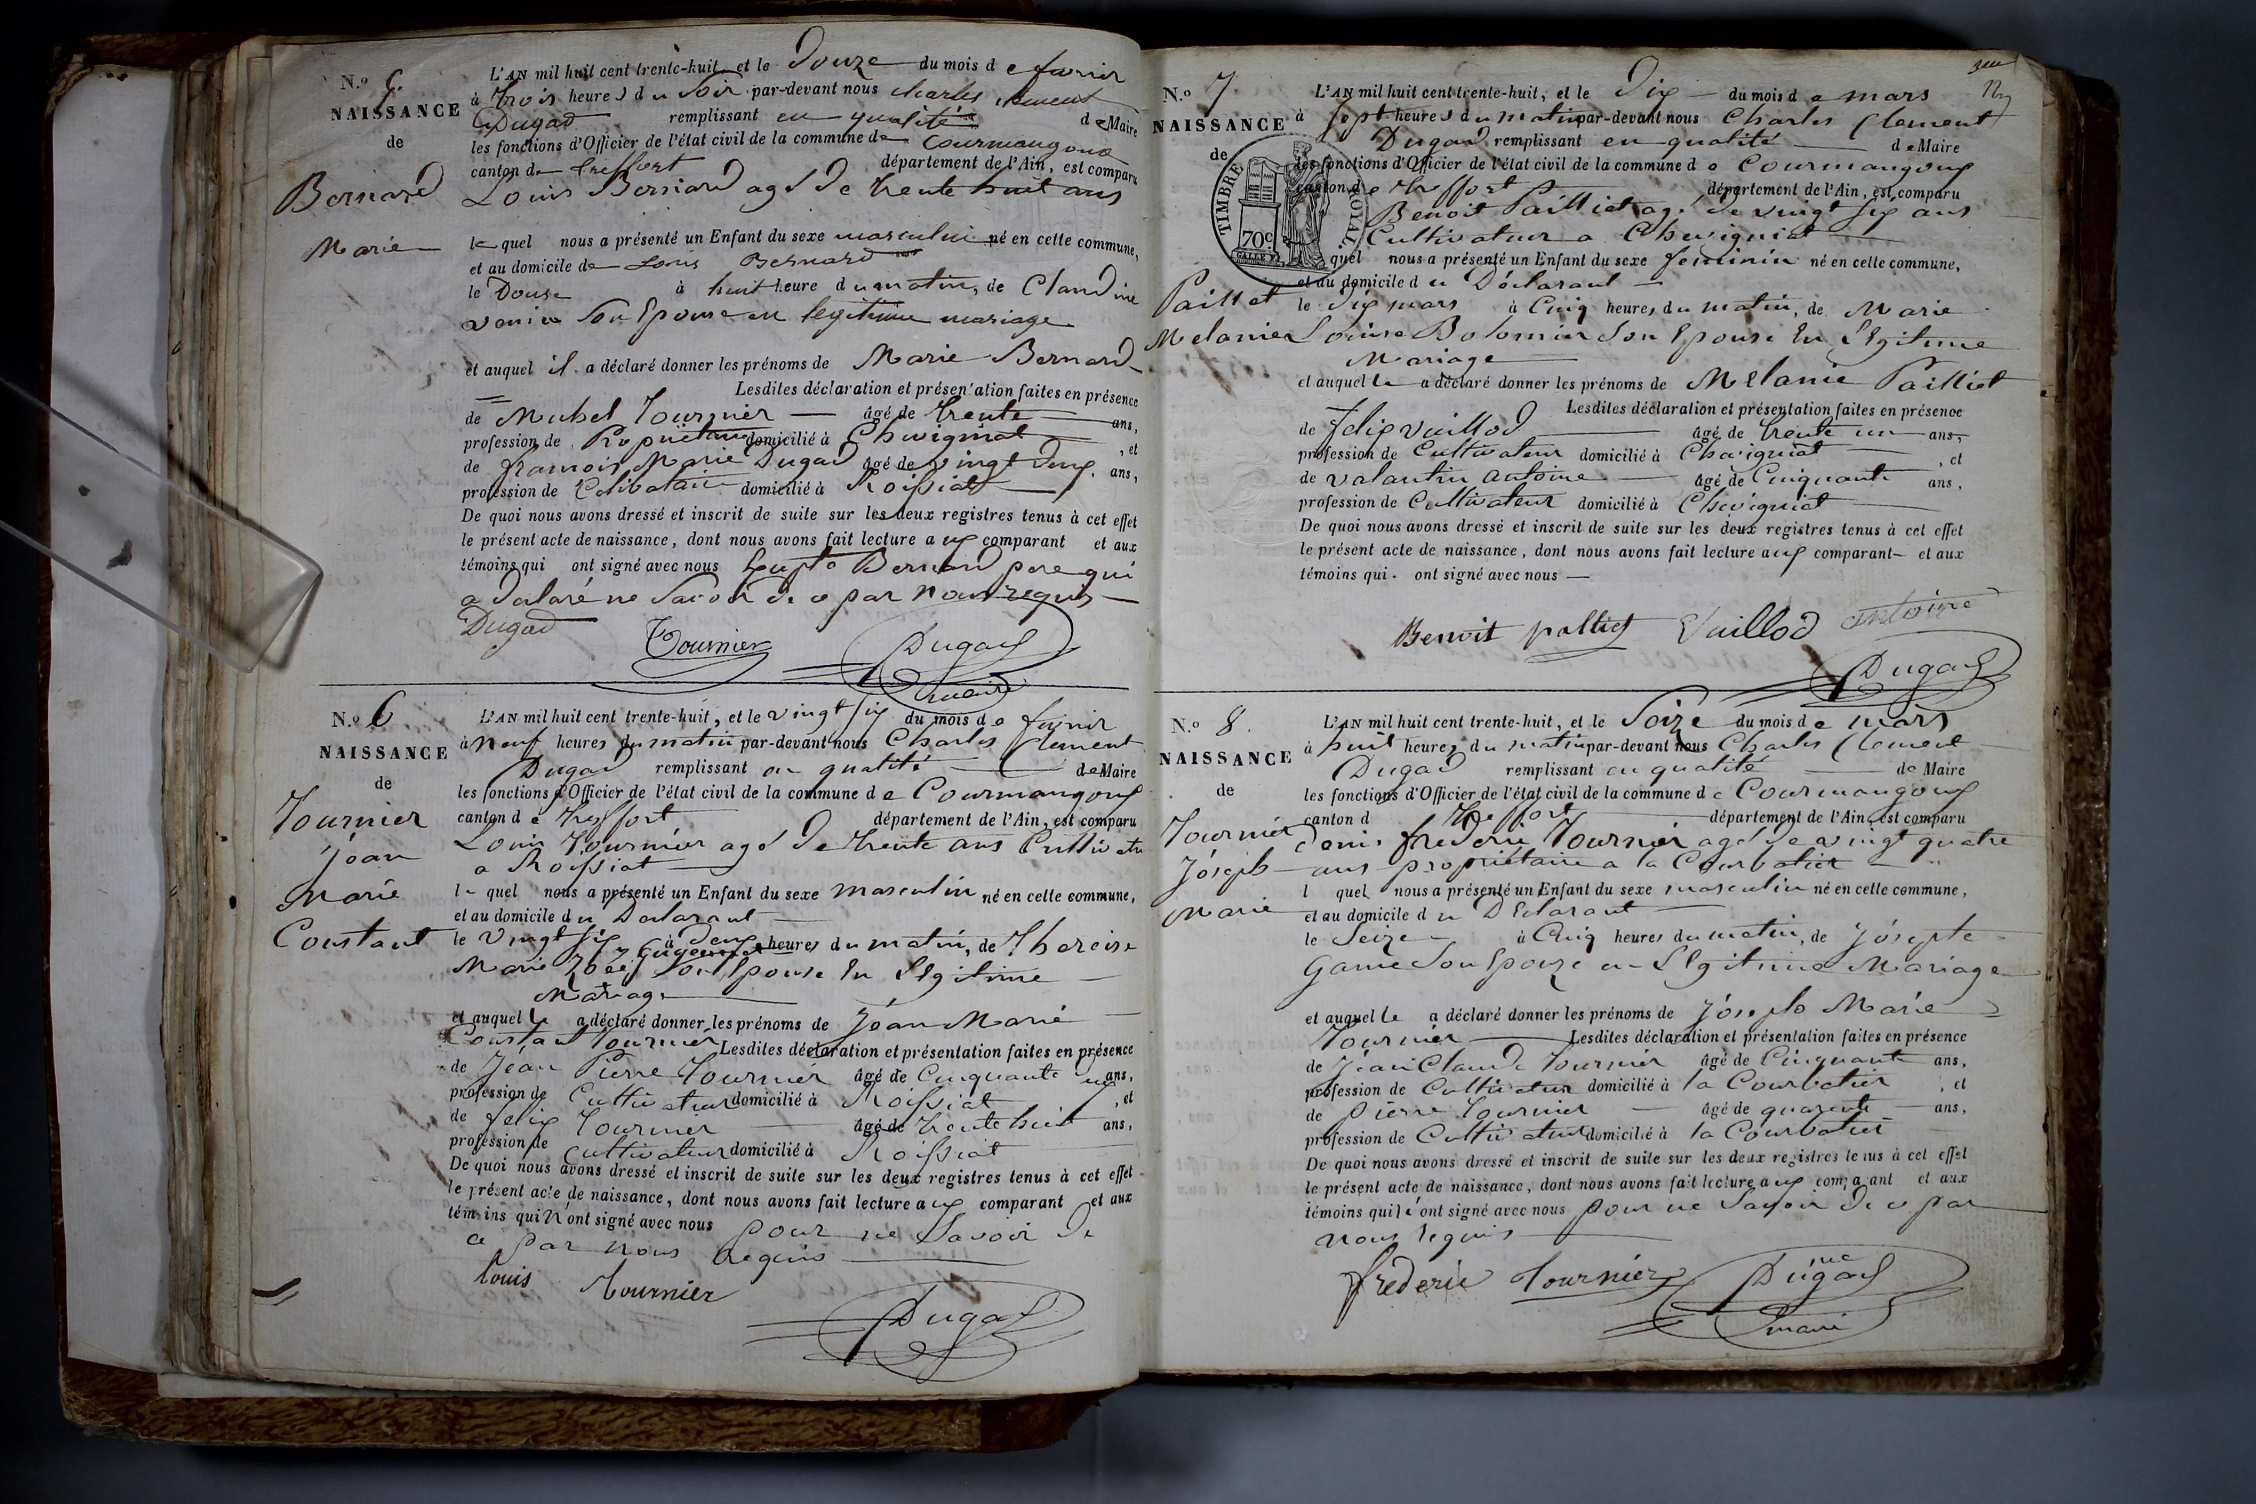 N.o
NAISSANCE
de
Bernard
Marie
L'AN mil huit cent trente-huit et le Douze du mois de fevrier
à trois heures du Soir par-devant nous charles clement
Dugad remplissant en qualité de Maire
les fonctions d'Officier de l'état civil de la commune de Courmangoux
canton de treffort département de l'Ain, est comparu
Louis Bernard agé de trente huit ans
le quel nous a présenté un Enfant du sexe masculin né en cette commune,
et au domicile de Louis Bernard
le Douse à huit heure du matin, de Claudine
Son Epouse en legitime mariage
et auquel il a déclaré donner les prénoms de Marie Bernard
Lesdites déclaration et présentation faites en présence
de Michel Tournier âgé de trente ans,
profession de Propriétaire domicilié à Chevigniat, et
de francois Marie Dugad âgé de vingt deux ans,
profession de Celibataire domicilié à Roissiat
De quoi nous avons dressé et inscrit de suite sur les deux registres tenus à cet effet
le présent acte de naissance, dont nous avons fait lecture aux comparant et aux
témoins qui ont signé avec nous Bernard pere qui
a déclaré ne Savoir de ce par nous requis
Dugad Tournier Dugad
maire
N.o 6
NAISSANCE
de
Tournier
jean
Marie
Constant
L'AN mil huit cent trente-huit, et le vingt six du mois de fevrier
à neuf heures du matin par-devant nous Charles Clement
Dugad remplissant en qualité de Maire
les fonctions d'Officier de l'état civil de la commune de Courmangoux
canton de treffort département de l'Ain, est comparu
Louis Tournier agé de trente ans Cultivateur
a Roissiat
le quel nous a présenté un Enfant du sexe masculin né en cette commune,
et au domicile du Déclarant
le vingt six à deux heures du matin, de Thereise
Marie Son Epouse En Légitime
Mariage
et auquel le a déclaré donner les prénoms de Jéan Marie
Constant Tournier Lesdites déclaration et présentation faites en présence
de Jéan Pierre Tournier âgé de Cinquante un ans,
profession de Cultivateur domicilié à Roissiat, et
de felix Tournier âgé de trente huit ans,
profession de Cultivateur domicilié à Roissiat
De quoi nous avons dressé et inscrit de suite sur les deux registres tenus à cet effet
le présent acte de naissance, dont nous avons fait lecture aux comparant et aux
témoins qui n'ont signé avec nous pour ne Savoir de
ce par nous requis
louis Tournier
Dugad
3eme
N.o 7
NAISSANCE
de
TIMBRE ROYAL.
70c
Paillet
Melanie
L'AN mil huit cent trente-huit, et le Dix du mois de mars
à sept heures du matin par-devant nous Charles Clement
Dugad remplissant en qualité de Maire
les fonctions d'Officier de l'état civil de la commune de Courmangoux
canton de treffort département de l'Ain, est comparu
Benoit Pailliet agé de vingt six ans
Cultivateur a Chevigniat
quel nous a présenté un Enfant du sexe feminin né en cette commune,
et au domicile du Déclarant
le dix mars à Cinq heures du matin, de Marie
Louise Bolomier Son Epouse En Légitime
Mariage
et auquel le a déclaré donner les prénoms de Mélanie Pailliet
Lesdites déclaration et présentation faites en présence
de Felix vuillod âgé de trente un ans,
profession de Cultivateur domicilié à Chevigniat, et
de valantin antoine âgé de Cinquante ans,
profession de Cultivateur domicilié à Chevigniat
De quoi nous avons dressé et inscrit de suite sur les deux registres tenus à cet effet
le présent acte de naissance, dont nous avons fait lecture aux comparant et aux
témoins qui ont signé avec nous
Benoit palliet Vuillod antoine
Dugad
N.o 8.
NAISSANCE
de
Tournier
Jóseph
Marie
L'AN mil huit cent trente-huit, et le Seize du mois de mars
à huit heures du matin par-devant nous Charles Clement
Dugad remplissant en qualité de Maire
les fonctions d'Officier de l'état civil de la commune de Courmangoux
canton d treffort département de l'Ain, est comparu
Denis frederic Tournier agé de vingt quatre
ans propriétaire a la Courbatier
l quel nous a présenté un Enfant du sexe masculin né en cette commune,
et au domicile du Déclarant
le Seize à Cinq heures du matin, de Jósepte
Game Son Epouze en Légitime Mariage
et auquel le a déclaré donner les prénoms de Jóseph Marie
Tournier Lesdites déclaration et présentation faites en présence
de Jéan Claude Tournier âgé de Cinquante ans,
profession de Cultivateur domicilié à la Courbatier, et
de pierre Tournier âgé de quarente ans,
profession de Cultivateur domicilié à la Courbatier
De quoi nous avons dressé et inscrit de suite sur les deux registres tenus à cet effet
le présent acte de naissance, dont nous avons fait lecture aux comparant et aux
témoins qui ont signé avec nous pour ne Savoir de ce par
nous requis
frederic Tournier Dugad
maire